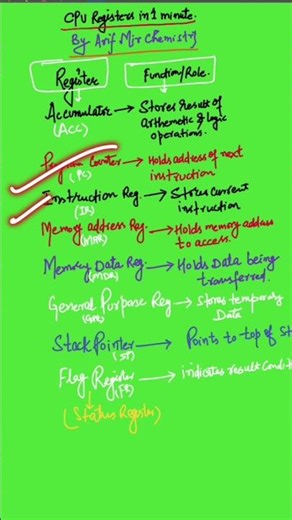 CPU Registers in 1 minute.
By Arif Mir Chemistry
Register Function/Role.
Accumulator → Stores result of
(ACC) arthemetic & logic
operations.
Program Counter → Holds address of next
(PC) instruction
Instruction Reg. → Stores current
(IR) instruction
Memory address Reg. → Holds memory address
(MAR) to access.
Memory Data Reg. → Holds Data being
(MDR) transferred.
General Purpose Reg → Stores temporary
(GPR) Data
Stack Pointer → Points to top of St
(SP)
Flag Register → indicates result Condit
(FR)
(Status Register)